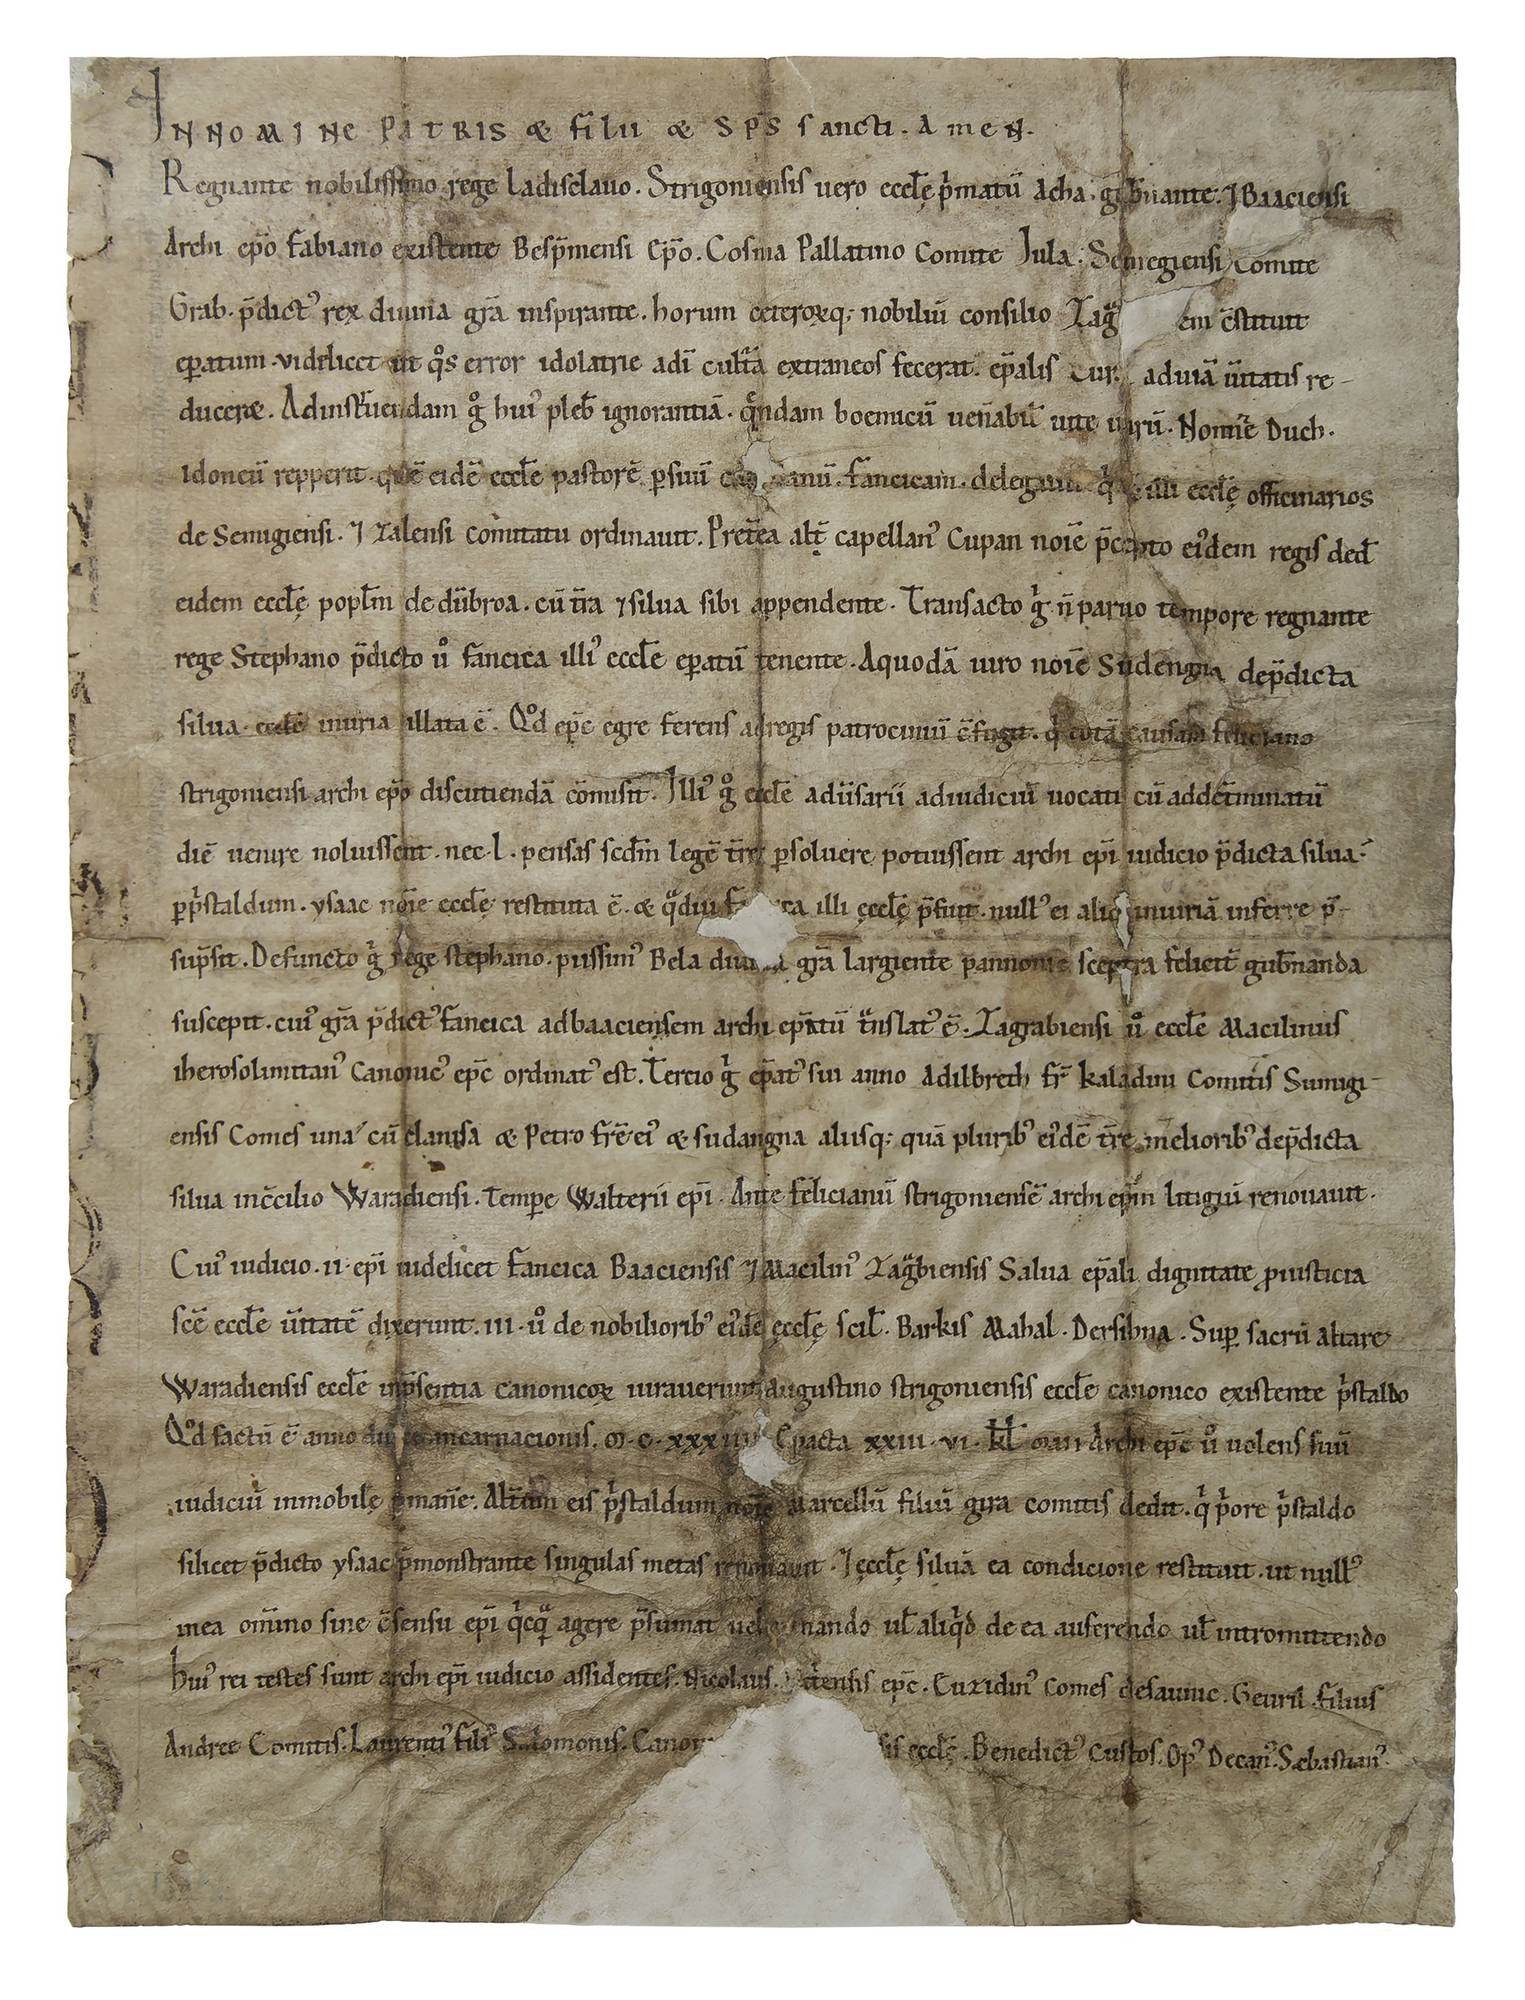 IN NOMINE PATRIS & filii & SPS sancti. AmeN.
Regnante nobilissimo rege Ladisclauo. Strigoniensis uero eccłę p̄matū Acha. gub̄nante. ⁊ Baaciensi
Archi ep̄o Fabiano existente Besp̄mensi Ep̄o. Cosma Pallatino Comite Jula. Semegiensi Comite
Grab. p̄dictꝰ rex diuina gr̄a inspirante. horum ceteroꝝq; nobiliū consilio em c̄stituit
ep̄atum. videlicet ut qͦs error idolatrie a dī cultͣa extraneos fecerat. ep̄alis ad uiā ūitatis re-
ducere. Ad instͣuendam gͦ huiꝰ pleb̄ ignorantiā. qͣndam boemicū uen̄abił uite uirū. Nomīe Duch.
Idoneū repperit. quē eidē eccłe pastorē ꝑ suū fancicam. delegauit illi eccłę officinarios
de Semigiensi. ⁊ Zalensi comitatu ordinauit. Pret̄ea alt̄ capellanꝰ Cupan noīe p̄cepto eiꝰdem regis ded̄
eidem eccłę popłm de dūbroa. cū t̄ra ⁊ silua sibi appendente. Transacto gͥ n̄ paruo tempore regnante
rege Stephano p̄dicto uͦ fancica illiꝰ eccłe ep̄atū tenente. A quodā uiro noīe Sudengna de p̄dicta
silua. eccłe iniuria illata ē. Qͦd ep̄c egre ferens ad regis patrociniū c̄fugit. qͥ totā causam feliciano
strigoniensi archi ep̄o discutiendā cōmisit. Illiꝰ gͦ eccłe adūsarii ad iudiciū uocati cū ad det̄minatū
diē uenire noluissent. nec. l. pensas scd̄m legē t̄re ꝑsoluere potuissent archi ep̄i iudicio p̄dicta silua.
ꝑ p̄staldum. ysaac noīe eccłe restituta ē. & qͣdiu illi eccłę p̄fuit. nullꝰ ei aliqͣ iniuriā inferre p̄-
sup̄sit. Defuncto gͥ rege stephano. piissimꝰ Bela gr̄a largiente pannonie sceptra felicit̄ gub̄nanda
suscepit. cuiꝰ gr̄a p̄dictꝰ fancica ad baaciensem archi ep̄atū tͣnslatꝰ ē. Zagrabiensi uͦ eccłe Macilinus
iherosolimitanꝰ Canonicꝰ ep̄c ordinatꝰ est. Tercio gͥ ep̄atꝰ sui anno Adilbreth fr̄ kaladini Comitis Sumigi-
ensis Comes una cū elanisa & Petro fr̄e eiꝰ & sudangna aliisq; quā pluribꝰ eiꝰdē t̄re melioribꝰ de p̄dicta
silua in c̄cilio Waradiensi. tempe Walterii ep̄i. Ante felicianū strigoniensē archi ep̄m litigiū renouauit.
Cuiꝰ iudicio. ii. ep̄i uidelicet fancica Baaciensis ⁊ Macilinꝰ Zagͣbiensis Salua ep̄ali dignitate ꝓ iusticia
scē eccłe ūitatē dixerunt. iii. uͦ de nobilioribꝰ eiꝰdē eccłę scil̄. Barkis Mahal. Dersibna. Suꝑ sacrū altare
Waradiensis eccłe in p̄sentia canonicoꝝ iurauerunt Augustino strigoniensis eccłe canonico existente p̄staldo
Qͦd factū ē anno incarnacionis. m. c. xxxiiii Epacta xxiii. vi. kł. Archi ep̄c uͦ uolens suū
iudiciū inmobile ꝑman̄e. Alt̄um eis p̄staldum noīe Marcellū filiū gira comitis dedit. qͥ p̄ore p̄staldo
silicet p̄dicto ysaac p̄monstrante singulas metas renouauit. ⁊ eccłę siluā ea condicione restituit. ut nullꝰ
in ea om̄ino sine c̄sensu ep̄i qͥcqͣ agere p̄sumat uł aliqͥd de ea auferendo uł intromittendo
huiꝰ rei testes sunt archi ep̄i iudicio assidentes. Nicolaus. ep̄c. Cuzidinꝰ Comes de saunic. Geuril. filius
Andree Comitis. Laurentiꝰ filiꝰ Salomonis. Canon sis eccłę. Benedictꝰ Custos. Opꝰ Decanꝰ. Sæbastianꝰ.